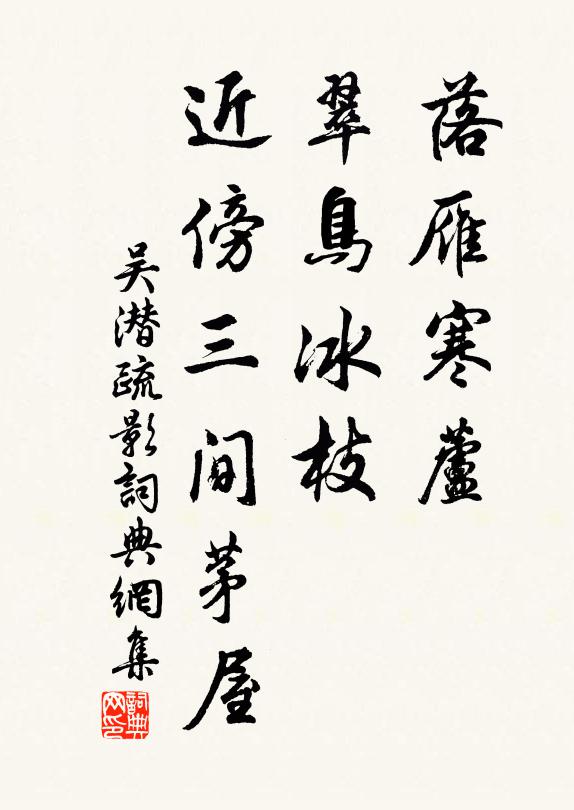 落雁寒蘆
翠鳥冰枝
近傍三間茅屋
吳潛疏影詞典網集
詞典網印